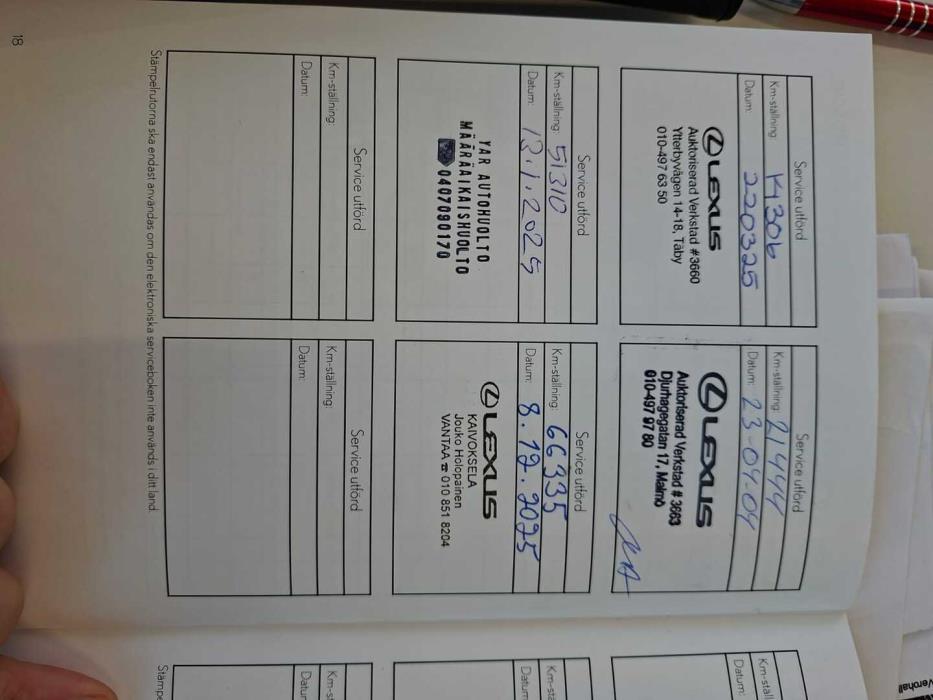 Service utförd
Km-ställning:
Datum: 220325
LEXUS
Auktoriserad Verkstad #3660
Ytterbyvägen 14-18, Täby
010-497 63 50
Service utförd
Km-ställning: 21444
Datum: 23-04-04
LEXUS
Auktoriserad Verkstad # 3663
Djurhagegatan 17, Malmö
010-497 97 80
Service utförd
Km-ställning: 51310
Datum: 13.1.2025
YAR AUTOHUOLTO
MÄÄRÄAIKAISHUOLTO
0407090170
Service utförd
Km-ställning: 66335
Datum: 8.12.2025
LEXUS
KAIVOKSELA
Jouko Holopainen
VANTAA ☎ 010 851 8204
Service utförd
Km-ställning:
Datum:
Service utförd
Km-ställning:
Datum:
Stämpelrutorna ska endast användas om den elektroniska serviceboken inte används i ditt land.
18